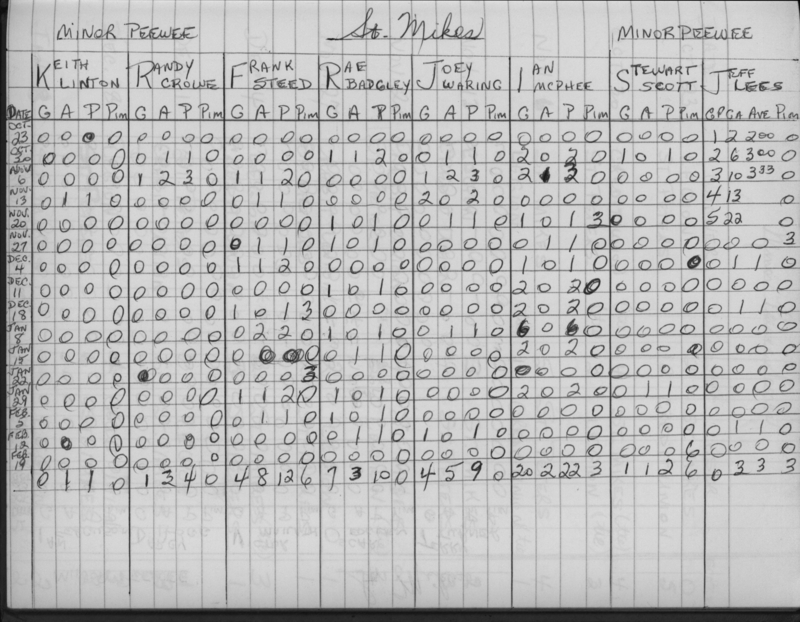 MINOR PEEWEE St. Mikes MINOR PEEWEE
KEITH LINTON RANDY CROWE FRANK STEED RAE BADGLEY JOEY WARING IAN MCPHEE STEWART SCOTT JEFF LEES
DATE G A P Pim G A P Pim G A P Pim G A P Pim G A P Pim G A P Pim G A P Pim GP GA AVE Pim
OCT. 23 0 0 0 0 0 0 0 0 0 0 0 0 0 0 0 0 0 0 0 0 0 0 0 0 0 0 0 0 1 2 200 0
OCT. 30 0 0 0 0 0 1 1 0 0 0 0 0 1 1 2 0 0 1 1 0 2 0 2 0 1 0 1 0 2 6 300 0
NOV 6 0 0 0 0 1 2 3 0 1 1 2 0 0 0 0 0 1 2 3 0 2 1 3 0 0 0 0 0 3 10 333 0
NOV. 13 0 1 1 0 0 0 0 0 0 1 1 0 0 0 0 0 2 0 2 0 0 0 0 0 0 0 0 0 4 13 0
NOV. 20 0 0 0 0 0 0 0 0 0 0 0 0 1 0 1 0 0 1 1 0 1 0 1 3 0 0 0 0 5 22 0
NOV. 27 0 0 0 0 0 0 0 0 0 1 1 0 1 0 1 0 0 0 0 0 0 1 1 0 0 0 0 0 0 0 0 3
DEC. 4 0 0 0 0 0 0 0 0 1 1 2 0 0 0 0 0 0 0 0 0 1 0 1 0 0 0 0 0 0 1 1 0
DEC. 11 0 0 0 0 0 0 0 0 0 0 0 0 1 0 1 0 0 0 0 0 2 0 2 0 0 0 0 0 0 0 0 0
DEC 18 0 0 0 0 0 0 0 0 1 0 1 3 0 0 0 0 0 0 0 0 2 0 2 0 0 0 0 0 0 1 1 0
JAN 8 0 0 0 0 0 0 0 0 0 2 2 0 1 0 1 0 0 1 1 0 6 0 6 0 0 0 0 0 0 0 0 0
JAN 15 0 0 0 0 0 0 0 0 0 0 0 0 0 1 1 0 0 0 0 0 2 0 2 0 0 0 0 0 0 0 0 0
JAN 22 0 0 0 0 0 0 0 0 0 0 0 3 0 0 0 0 0 0 0 0 0 0 0 0 0 0 0 0 0 0 0 0
JAN 29 0 0 0 0 0 0 0 0 1 1 2 0 1 0 1 0 0 0 0 0 2 0 2 0 0 1 1 0 0 0 0 0
FEB. 0 0 0 0 0 0 0 0 0 1 1 0 1 0 1 0 0 0 0 0 0 0 0 0 0 0 0 0 0 0 0 0
FEB. 12 0 0 0 0 0 0 0 0 0 0 0 0 0 1 1 0 1 0 1 0 0 0 0 0 0 0 0 0 0 1 1 0
FEB. 19 0 0 0 0 0 0 0 0 0 0 0 0 0 0 0 0 0 0 0 0 0 0 0 0 0 0 0 6 0 0 0 0
0 1 1 0 1 3 4 0 4 8 12 6 7 3 10 0 4 5 9 0 20 2 22 3 1 1 2 6 0 3 3 3